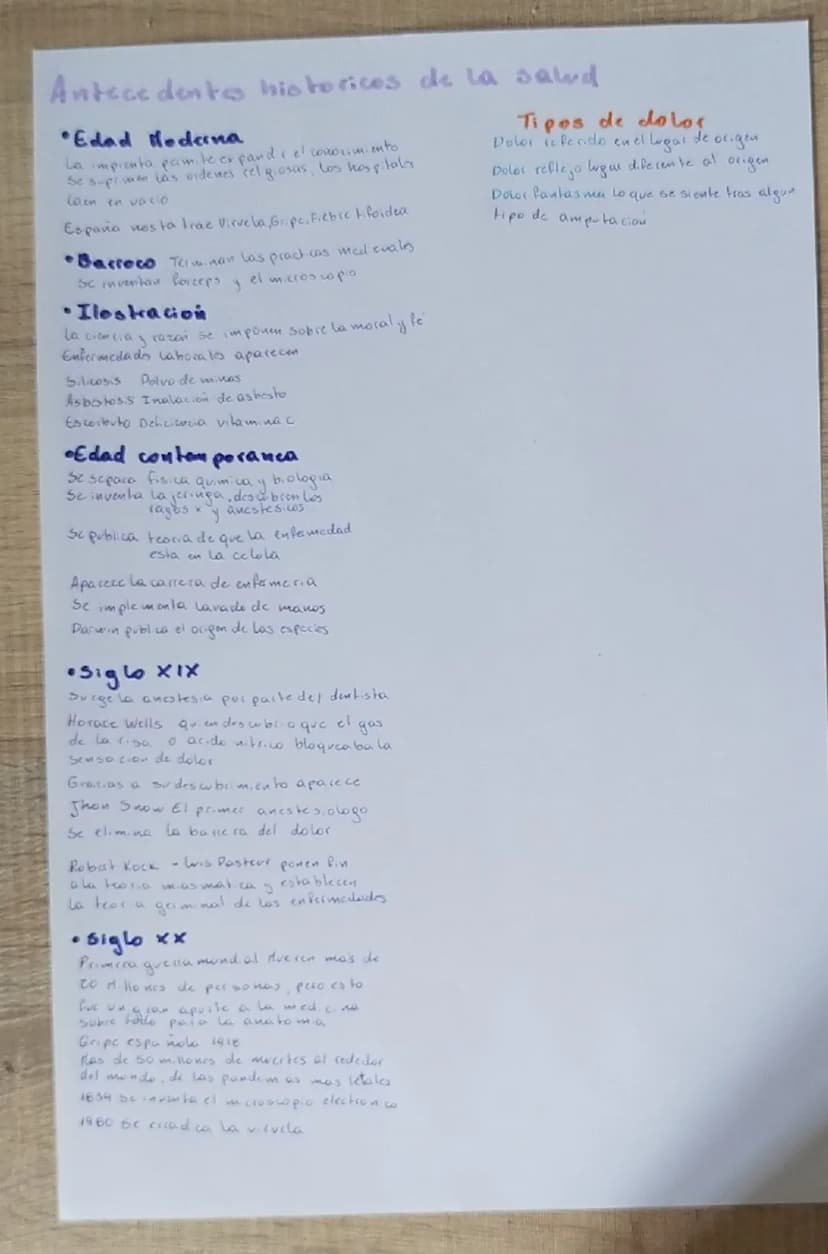 Antecedentes historicos de la salud
• Edad Moderna
La imprenta permite expandir el conocimiento
Se suprimen las ordenes religiosas, los hospitales
caen en vacio
España nos la trae Viruela, Gripe, Fiebre tifoidea
• Barroco Terminan las practicas medievales
Se inventan forceps y el microscopio
• Ilostracion
La ciencia y razon se imponen sobre la moral y fe
Enfermedades laborales aparecen
Silicosis Polvo de minas
Asbotosis Inalacion de asbesto
Escorbuto Deficiencia vitamina c
• Edad contemporanea
Se separa fisica quimica y biologia
Se inventa la jeringa, descubren los
rayos x y anestesicos
Se publica teoria de que la enfermedad
esta en la celola
Aparece la carrera de enfermeria
Se implementa lavado de manos
Darwin publica el origen de las especies
• Siglo XIX
Surge la anestesia por parte del dentista
Horace Wells quien descubrio que el gas
de la risa o acido nitrico bloqueaba la
sensacion de dolor
Gracias a su descubrimiento aparece
Jhon Snow El primer anestesiologo
Se elimina la barrera del dolor
Robert Kock - Luis Pasteur ponen fin
a la teoria miasmatica y establecen
la teoria germinal de las enfermedades
• Siglo XX
Primera guerra mundial Mueren mas de
20 Millones de personas, pero esto
fue un gran aporte a la medicina
sobre todo para la anatomia
Gripe española 1918
Mas de 50 millones de muertes al rededor
del mundo, de las pandemias mas letales
se inventa el microscopio electronico
1980 se erradica la viruela
Tipos de dolor
Dolor referido en el lugar de origen
Dolor reflejo lugar diferente al origen
Dolor fantasma lo que se siente tras algun
tipo de amputacion